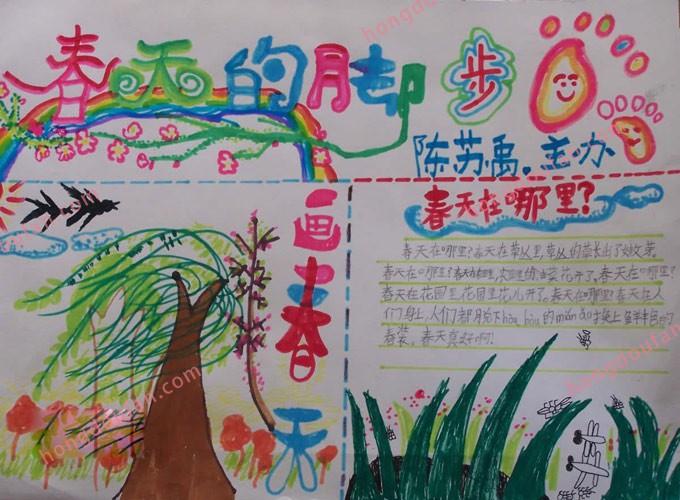 春天的脚步
陈苏禹。主办
画春天
春天在哪里?
春天在哪里?春天在草丛里,草丛的草长出了嫩芽。
春天在哪里?春天在 花开了。春天在哪里?
春天在花园里,花园里花儿开了。春天在哪里?春天在人
们身上,人们都脱下hòu hòu的mián ǎo 换上鲜 的
春装。春天真好啊!